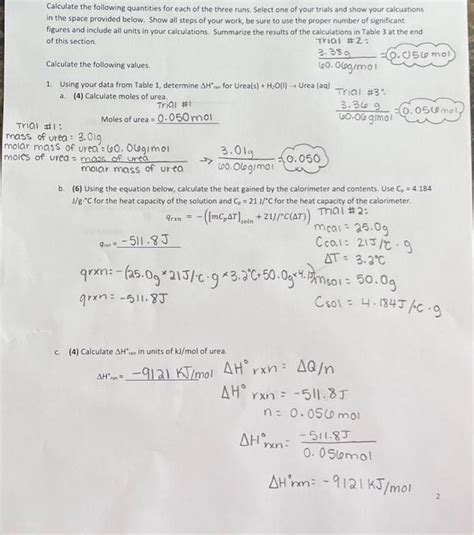 Calculate the following quantities for each of the three runs. Select one of your trials and show your calcuations
in the space provided below. Show all steps of your work, be sure to use the proper number of significant
figures and include all units in your calculations. Summarize the results of the calculations in Table 3 at the end
of this section.
Trial #2:
3.38g
60.06g/mol
= 0.056mol
Calculate the following values.
1. Using your data from Table 1, determine ΔH°rxn for Urea(s) + H₂O(l) → Urea (aq)
a. (4) Calculate moles of urea.
Trial #3:
3.36 g
60.06g/mol
= 0.056mol
Trial #1
Moles of urea = 0.050mol
Trial #1:
mass of urea = 3.01g
molar mass of urea = 60.06g/mol
moles of urea = mass of urea
molar mass of urea
→ 3.01g
60.06g/mol
= 0.050
b. (6) Using the equation below, calculate the heat gained by the calorimeter and contents. Use Cp = 4.184
J/g·°C for the heat capacity of the solution and Cp = 21 J/°C for the heat capacity of the calorimeter.
qrxn = −([mCpΔT]soln + 21J/°C(ΔT))
Trial #2:
mcal = 25.0g
Ccal = 21J/°C·g
ΔT = 3.2°C
msol = 50.0g
Csol = 4.184J/°C·g
qrxn = -511.8J
qrxn = -(25.0g × 21J/°C·g × 3.2°C + 50.0g × 4.18
qrxn = -511.8J
c. (4) Calculate ΔH°rxn in units of kJ/mol of urea.
ΔH°rxn = -9121 KJ/mol
ΔH°rxn = ΔQ/n
ΔH°rxn = -511.8J
n = 0.056mol
ΔH°rxn = -511.8J
0.056mol
ΔH°rxn = -9121KJ/mol
2